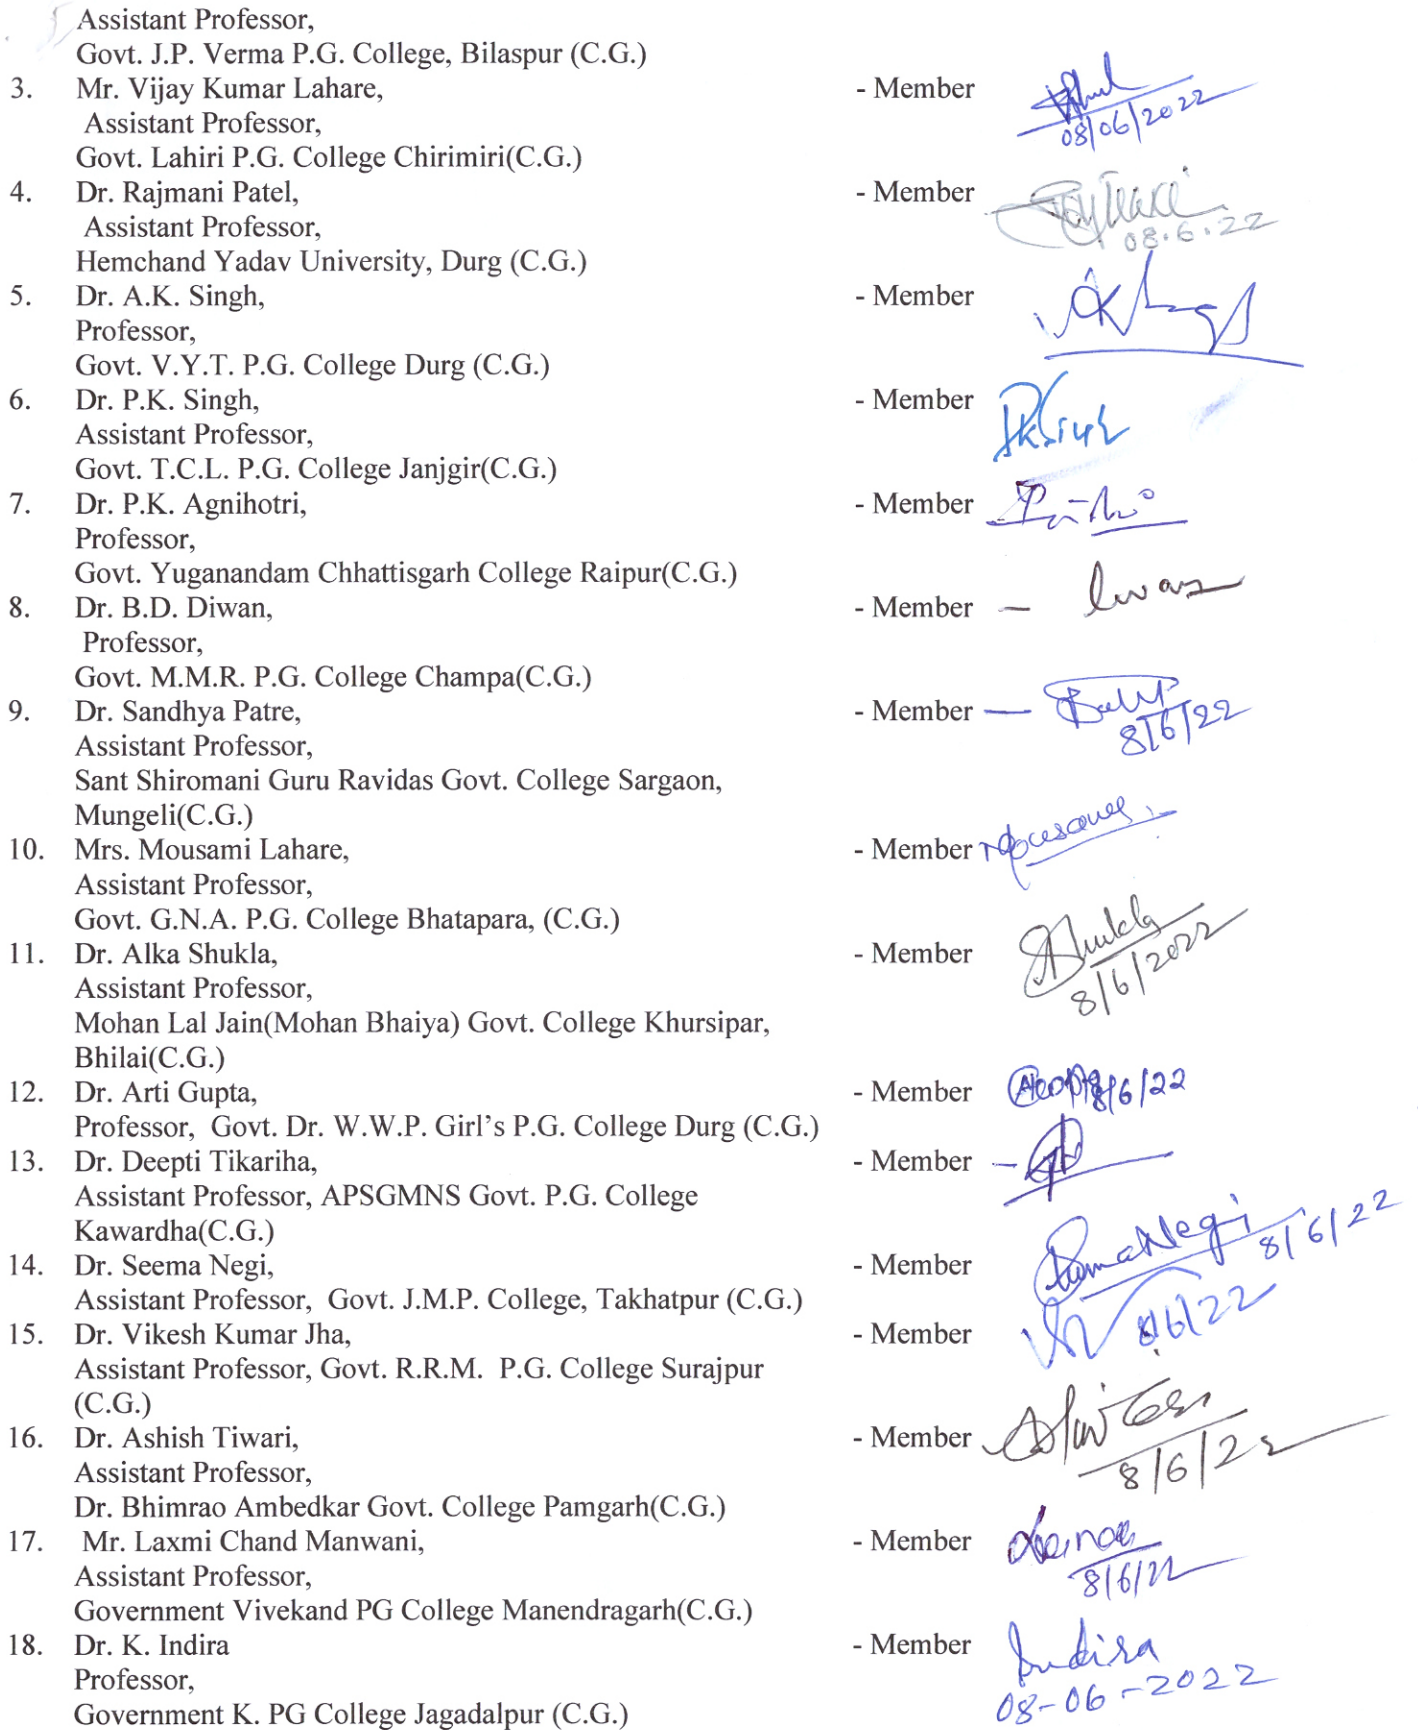 Assistant Professor,
Govt. J.P. Verma P.G. College, Bilaspur (C.G.)
3. Mr. Vijay Kumar Lahare, - Member
Assistant Professor,
08/06/2022
Govt. Lahiri P.G. College Chirimiri(C.G.)
4. Dr. Rajmani Patel, - Member
Assistant Professor,
08.6.22
Hemchand Yadav University, Durg (C.G.)
5. Dr. A.K. Singh, - Member
Professor,
Govt. V.Y.T. P.G. College Durg (C.G.)
6. Dr. P.K. Singh, - Member
Assistant Professor,
Govt. T.C.L. P.G. College Janjgir(C.G.)
7. Dr. P.K. Agnihotri, - Member
Professor,
Govt. Yuganandam Chhattisgarh College Raipur(C.G.)
8. Dr. B.D. Diwan, - Member —
Professor,
Govt. M.M.R. P.G. College Champa(C.G.)
9. Dr. Sandhya Patre, - Member —
8/6/22
Assistant Professor,
Sant Shiromani Guru Ravidas Govt. College Sargaon,
Mungeli(C.G.)
10. Mrs. Mousami Lahare, - Member
Assistant Professor,
Govt. G.N.A. P.G. College Bhatapara, (C.G.)
11. Dr. Alka Shukla, - Member AShukla
Assistant Professor,
8/6/2022
Mohan Lal Jain(Mohan Bhaiya) Govt. College Khursipar,
Bhilai(C.G.)
12. Dr. Arti Gupta, - Member 8/6/22
Professor, Govt. Dr. W.W.P. Girl's P.G. College Durg (C.G.)
13. Dr. Deepti Tikariha, - Member -
Assistant Professor, APSGMNS Govt. P.G. College
Kawardha(C.G.)
14. Dr. Seema Negi, - Member Seema Negi 8/6/22
Assistant Professor, Govt. J.M.P. College, Takhatpur (C.G.)
15. Dr. Vikesh Kumar Jha, - Member 8/6/22
Assistant Professor, Govt. R.R.M. P.G. College Surajpur
(C.G.)
16. Dr. Ashish Tiwari, - Member
Assistant Professor,
8/6/22
Dr. Bhimrao Ambedkar Govt. College Pamgarh(C.G.)
17. Mr. Laxmi Chand Manwani, - Member
Assistant Professor,
8/6/22
Government Vivekand PG College Manendragarh(C.G.)
18. Dr. K. Indira - Member Indira
Professor,
08-06-2022
Government K. PG College Jagadalpur (C.G.)